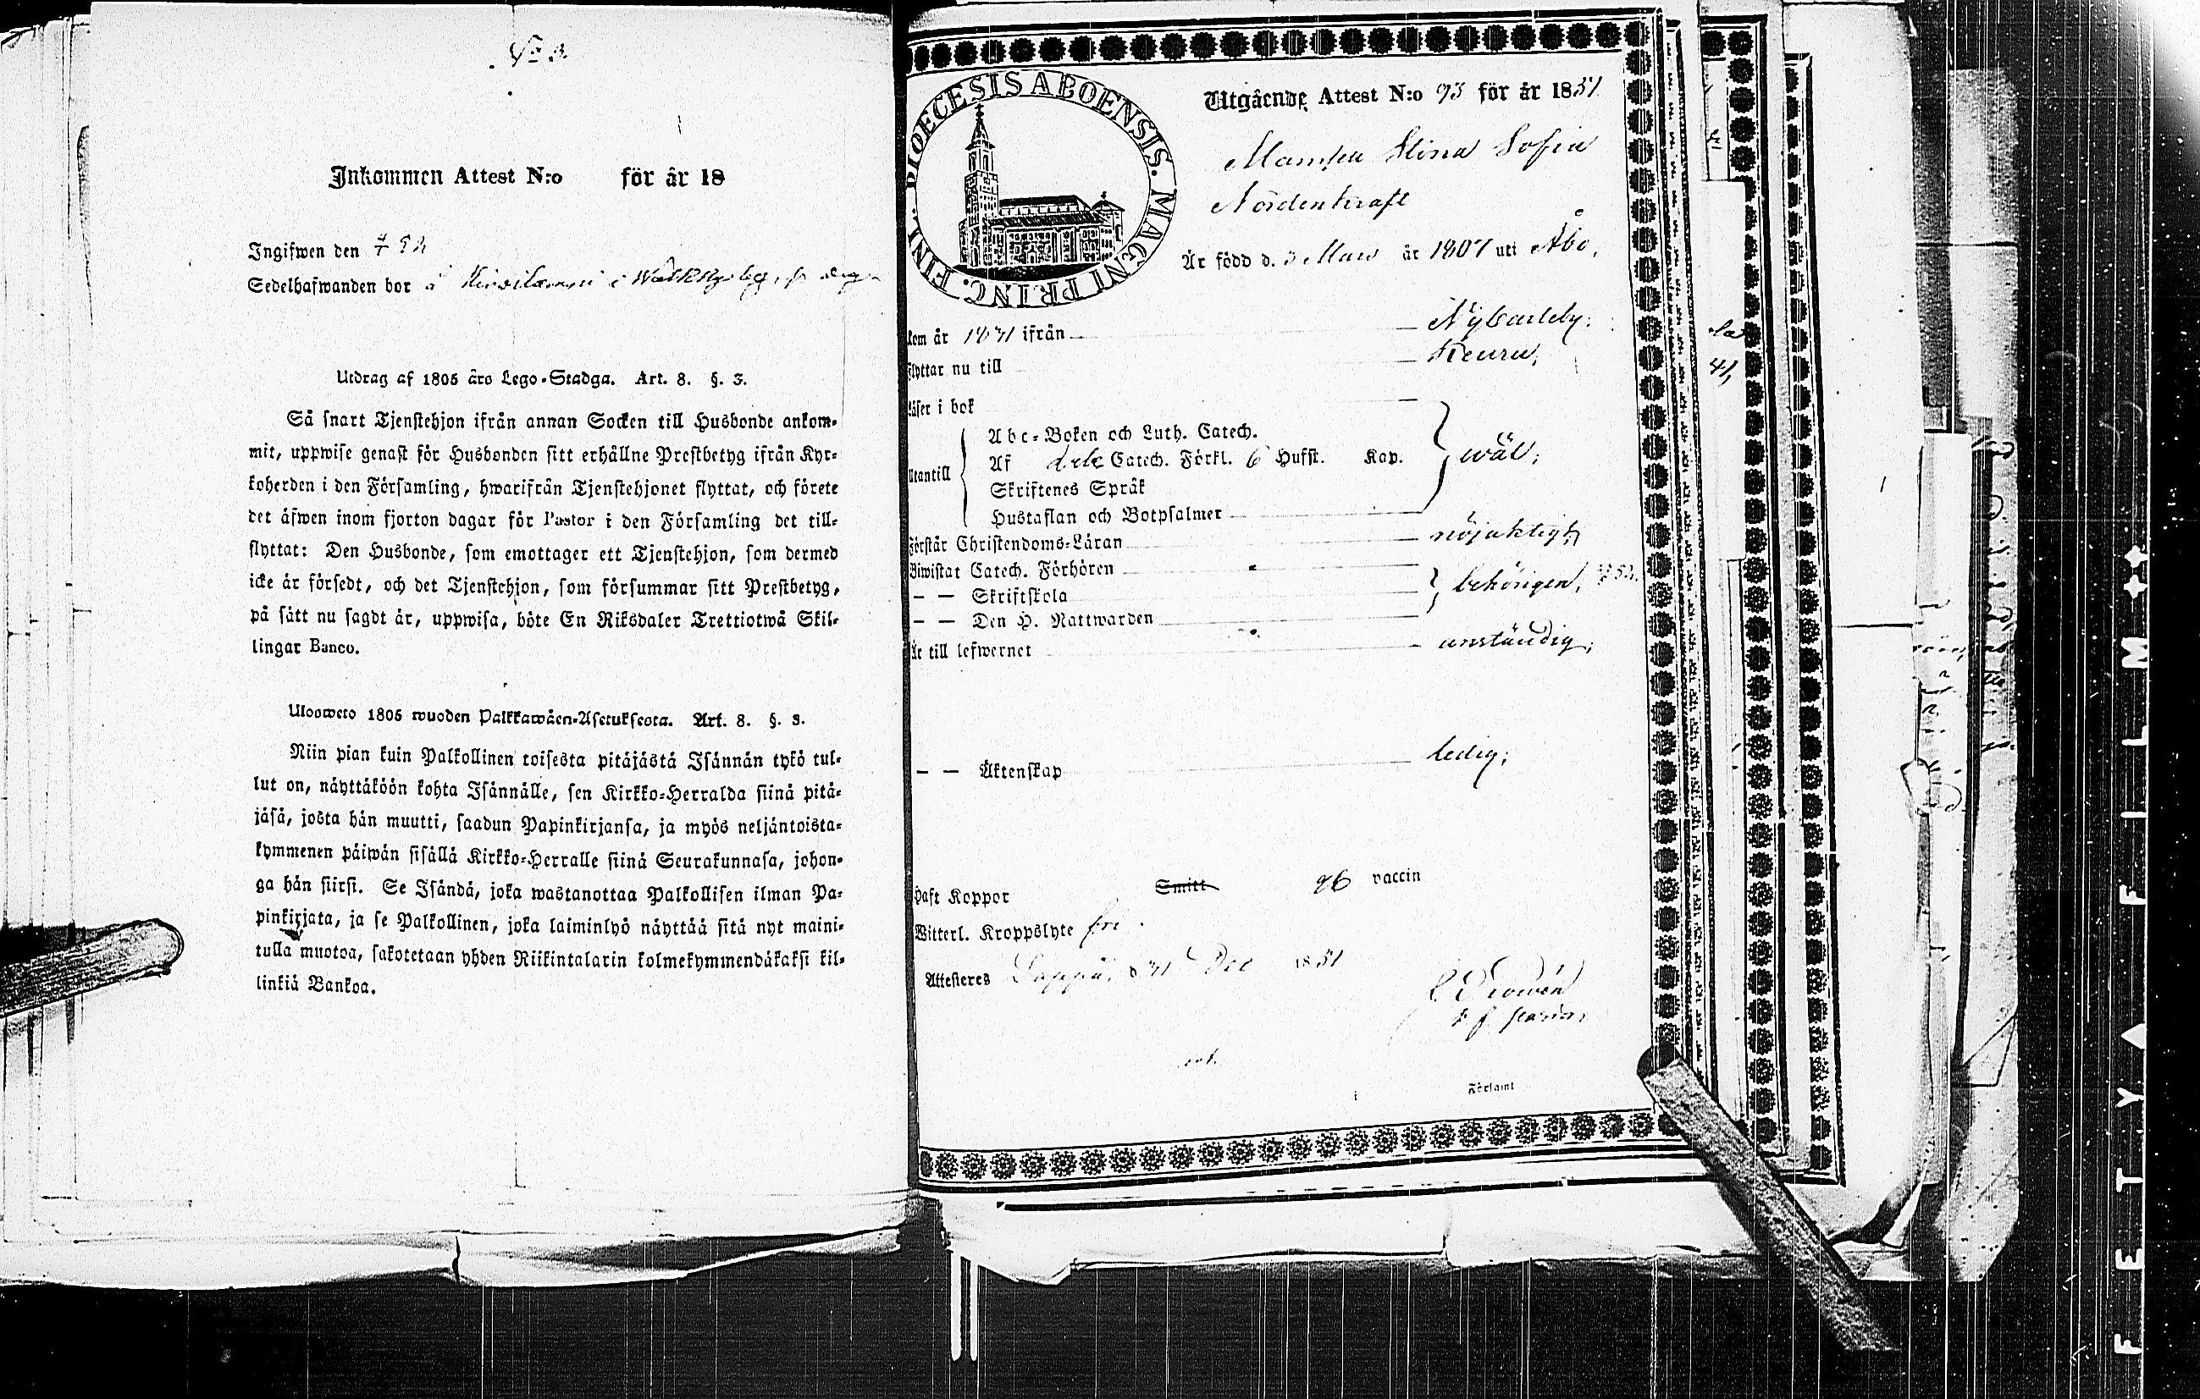 No 3.
Inkommen Attest N:o för år 18
Ingifwen den 4/1 52
Sedelhafwanden bor å i
Utdrag af 1805 års Lego-Stadga. Art. 8. §. 3.
Så snart Tjenstehjon ifrån annan Socken till Husbonde ankom-
mit, uppwise genast för Husbonden sitt erhållne Prestbetyg ifrån Kyr-
koherden i den Församling, hwarifrån Tjenstehjonet flyttat, och förete
det äfwen inom fjorton dagar för Pastor i den Församling det till-
flyttat: Den Husbonde, som emottager ett Tjenstehjon, som dermed
icke är försedt, och det Tjenstehjon, som försummar sitt Prestbetyg,
på sätt nu sagdt är, uppwisa, böte En Riksdaler Trettiotwå Skil-
lingar Banco.
Ulosweto 1805 wuoden Palkkawäen-Asetuksesta. Art. 8. §. 3.
Niin pian kuin Palkollinen toisesta pitäjästä Isännän tykö tul-
lut on, näyttäköön kohta Isännälle, sen Kirkko-Herralda siinä pitä-
jäsä, josta hän muutti, saadun Papinkirjansa, ja myös neljäntoista-
kymmenen päiwän sisällä Kirkko-Herralle siinä Seurakunnasa, johon-
ga hän siirsi. Se Isändä, joka wastanottaa Palkollisen ilman Pa-
pinkirjata, ja se Palkollinen, joka laiminlyö näyttää sitä nyt maini-
tulla muotoa, sakotetaan yhden Riikintalarin kolmekymmendäkaksi kil-
linkiä Bankoa.
DIOECESIS ABOENSIS. MAGNI PRINC. FINL.
Utgående Attest N:o 93 för år 1851
Mamsell Stina Sofia
Nordenkraft
Är född d. 3 Mars år 1807 uti Åbo,
kom år 1831 ifrån Nykarleby.
flyttar nu till Keuru,
läser i bok
Abc-Boken och Luth. Catech.
utantill Af Catech. Förkl. 6 Hufst. Kap. wäl,
Skriftenes Språk
Hustaflan och Botpsalmer
förstår Christendoms-Läran nöjaktigt,
Biwistat Catech. Förhören
— — Skriftskola behörigen,
— — Den H. Nattwarden
Är till lefwernet anständig,
— — Äktenskap ledig,
haft Koppor Smitt vaccin
Witterl. Kroppslyte fri.
Attesteres Lappå, d 31 Dec 1851
Församl
FETYA FILM